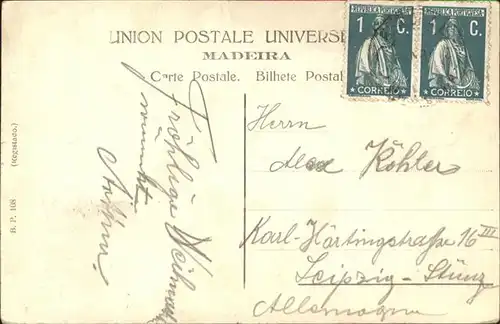 UNION POSTALE UNIVERSE
MADEIRA
Carte Postale. Bilhete Postal
REPUBLICA PORTUGUESA
1 C.
CORREIO
REPUBLICA PORTUGUESA
1 C.
CORREIO
Fröhliche Weihnacht
Arthur.
Herrn
Alex Köhler
Karl-Härtingstraße 16 III
Leipzig-Stünz
Allemagne
B. P. 108 (Registado.)